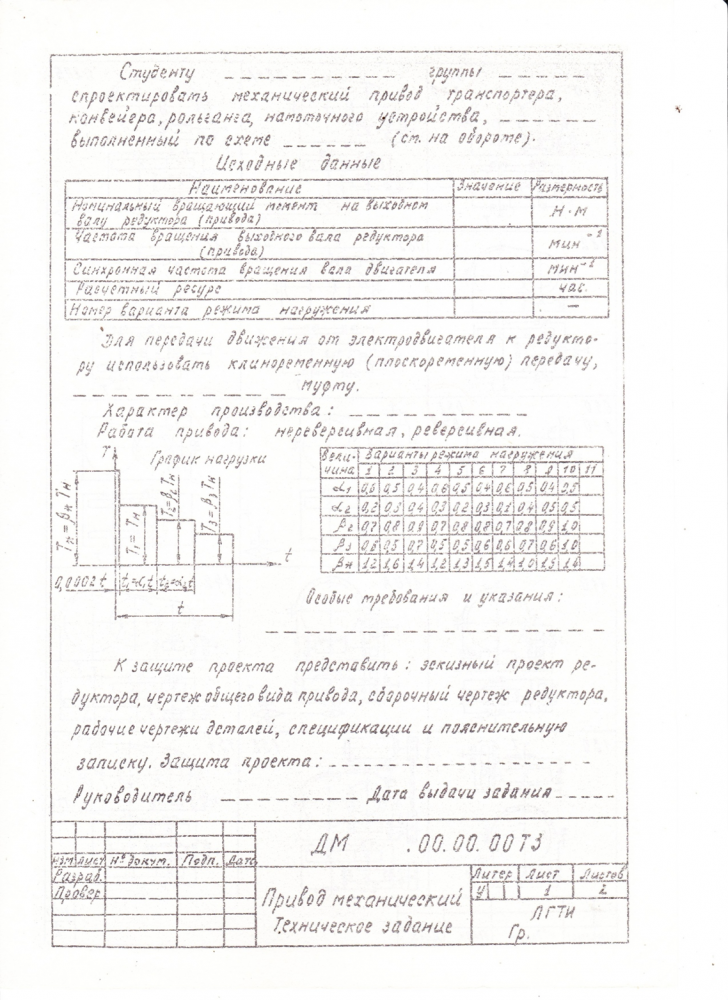 Студенту _ _ _ _ _ _ _ _ _ группы _ _ _ _ _
спроектировать механический привод транспортера,
конвейера, рольганга, намоточного устройства, _ _ _ _ _ _
выполненный по схеме _ _ _ _ _ _ (см. на обороте).
Исходные данные
Наименование Значение Размерность
Номинальный вращающий момент на выходном
валу редуктора (привода) Н·м
Частота вращения выходного вала редуктора
(привода) мин⁻¹
Синхронная частота вращения вала двигателя мин⁻¹
Расчетный ресурс час.
Номер варианта режима нагружения —
Для передачи движения от электродвигателя к редукто-
ру использовать клиноременную (плоскоременную) передачу,
_ _ _ _ _ _ _ _ _ _ муфту.
Характер производства: _ _ _ _ _ _ _ _ _
Работа привода: нереверсивная, реверсивная.
График нагрузки
T
Tп = βп Tн
T1 = Tн
T2 = β2 Tн
T3 = β3 Tн
t
0,0002t t1=α1t t2=α2t
t
Вели-чина Варианты режима нагружения
1 2 3 4 5 6 7 8 9 10 11
α1 0,5 0,4 0,6 0,5 0,4 0,6 0,5 0,4
α2 0,2 0,3 0,4 0,3 0,2 0,3 0,1 0,4 0,5 0,5
β2 0,7 0,8 0,9 0,7 0,8 0,8 0,7 0,8 0,9 1,0
β3 0,5 0,7 0,5 0,5 0,6 0,6 0,7 0,6 1,0
1,2 1,6 1,4 1,2 1,3 1,5 1,4
Особые требования и указания:
К защите проекта представить: эскизный проект ре-
дуктора, чертеж общего вида привода, сборочный чертеж редуктора,
рабочие чертежи деталей, спецификации и пояснительную
записку. Защита проекта: _ _ _ _ _ _ _ _ _ _ _ _
Руководитель _ _ _ _ _ _ _ Дата выдачи задания _ _ _ _ _
ДМ .00.00.00ТЗ
Изм Лист № докум. Подп. Дата
Разраб.
Провер
Привод механический
Техническое задание
Литер Лист Листов
У 1 2
ЛГТИ
Гр.